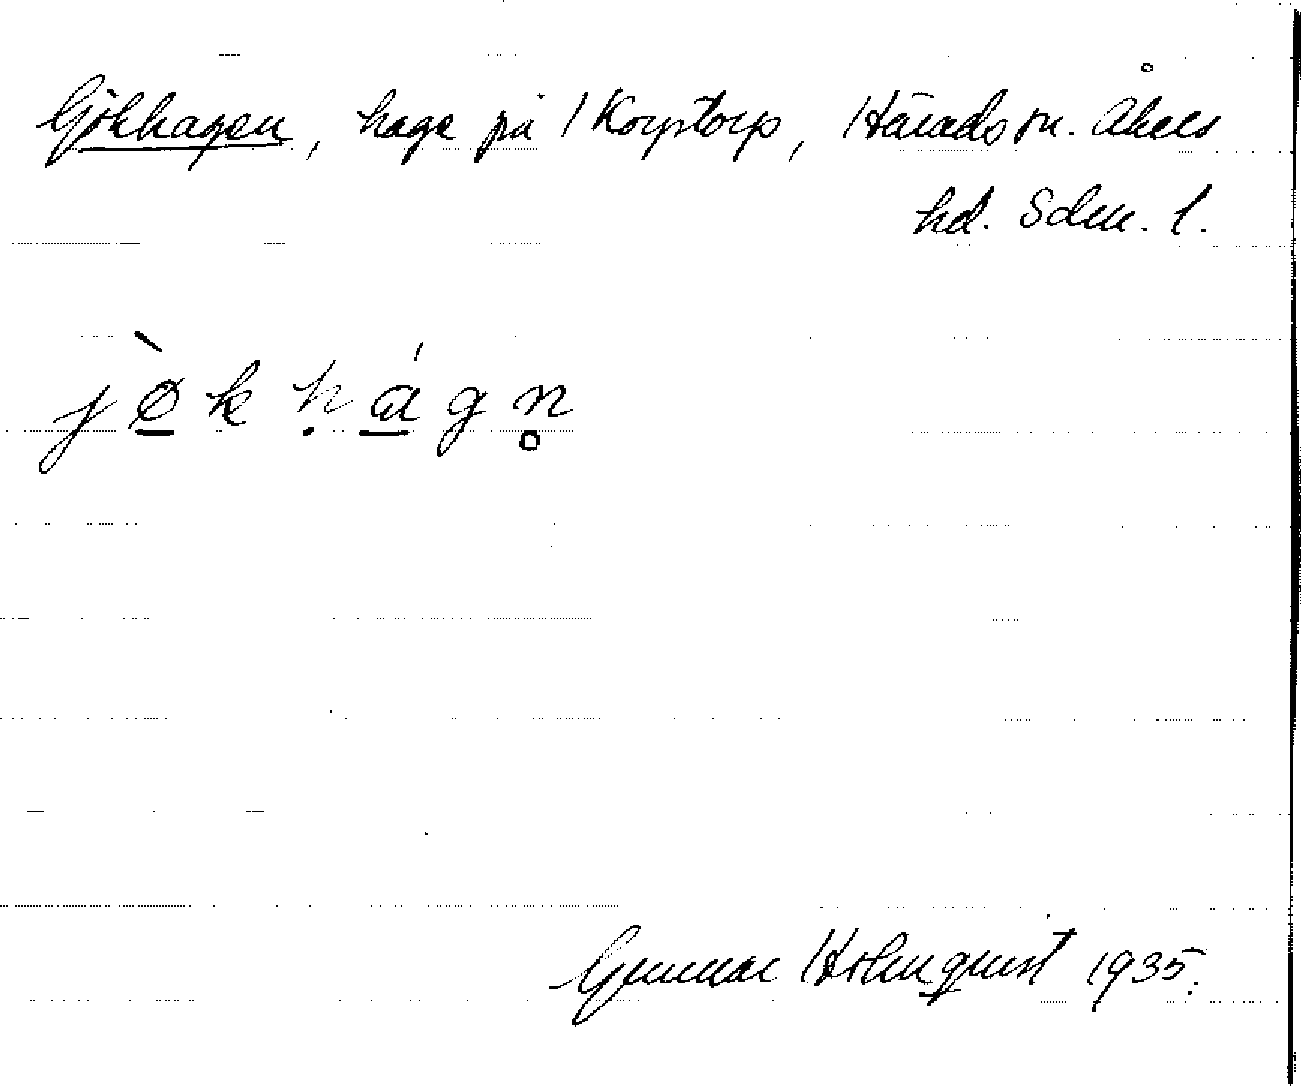 Gökhagen, hage på Korptorp, Härads sn. Åkers
hd. Sdm. l.
jø̀k hágn̥
Gunnar Holmquist 1935.